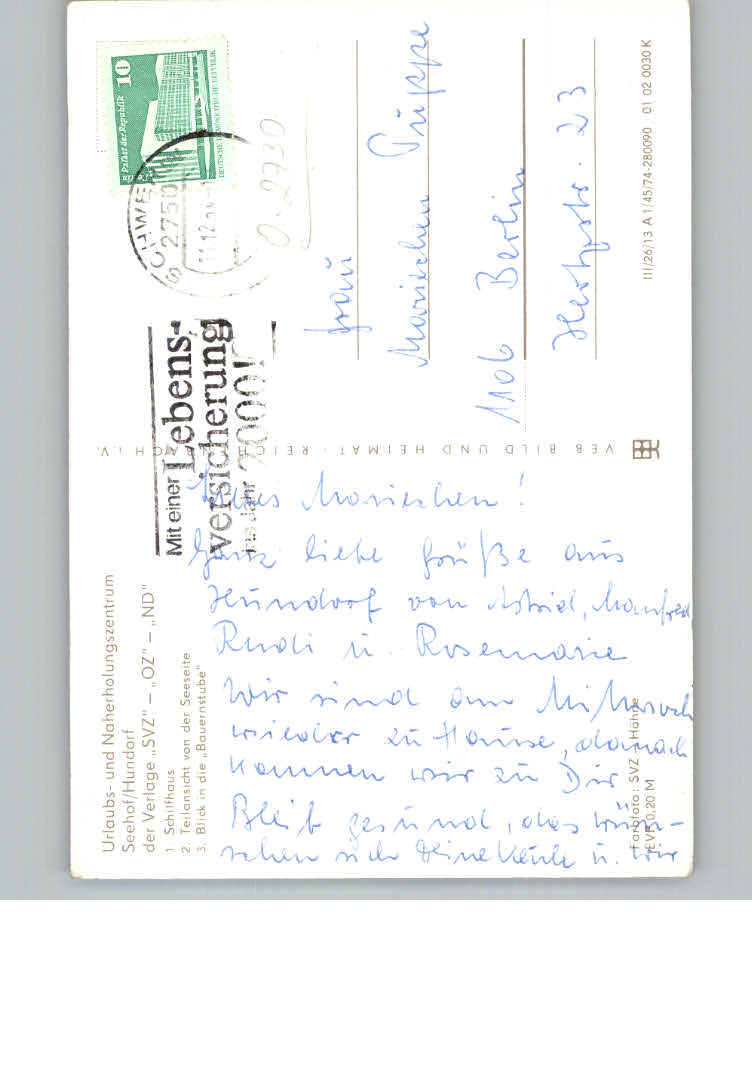 Urlaubs- und Naherholungszentrum
Seehof/Hundorf
der Verlage „SVZ" – „OZ" – „ND"
1 Schilfhaus
2. Teilansicht von der Seeseite
3. Blick in die „Bauernstube"
Mariechen!
Ganz liebe Grüße aus
Hundorf von Astrid, Manfred
Rudi u. Rosemarie
Wir sind am Mittwoch
wieder zu Hause, danach
kommen wir zu Dir
Bleib gesund, das wün-
schen sich Deine u. wir
Farbfoto: SVZ – Höhne
EVP 0,20 M
VEB BILD UND HEIMAT · REICHENBACH i. V.
Mit einer
Lebens-
versicherung
ins Jahr 2000!
SCHWE
2750
11.12
10
Palast der Republik
DEUTSCHE DEMOKRATISCHE REPUBLIK
O-2730
Frau
Mariechen Puppe
1106 Berlin
Hertzstr. 23
III/26/13 A 1/45/74-280090 01 02 0030 K